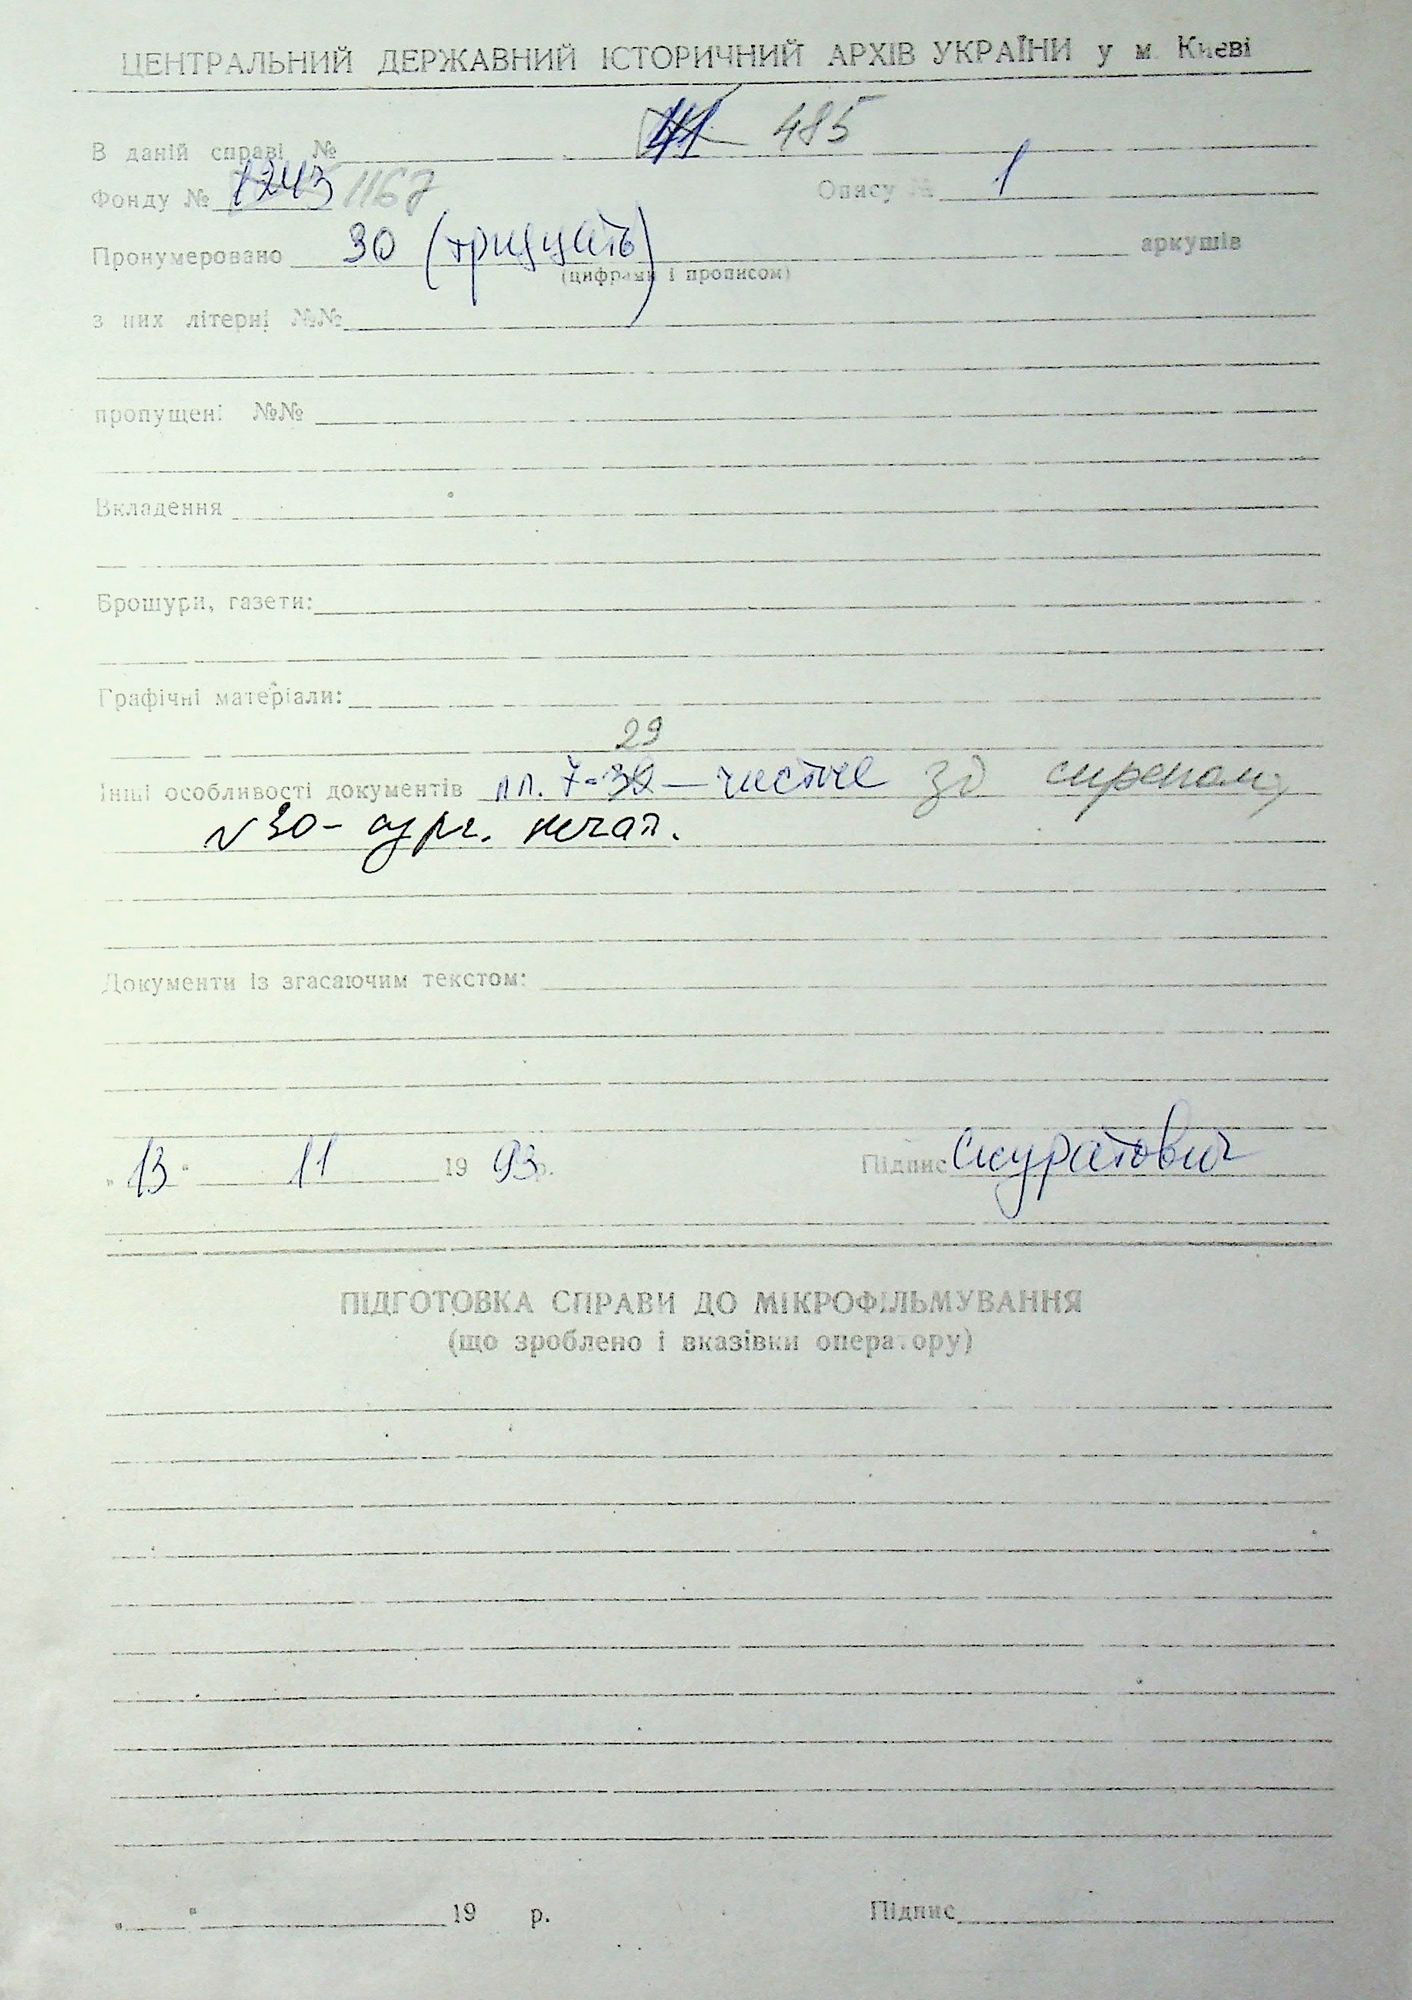 ЦЕНТРАЛЬНИЙ ДЕРЖАВНИЙ ІСТОРИЧНИЙ АРХІВ УКРАЇНИ у м. Києві
В даній справі № 485
Фонду № 1243 1167 Опису № 1
Пронумеровано 30 (тридцать) аркушів
(цифрами і прописом)
з них літерні №№
пропущені №№
Вкладення
Брошури, газети:
Графічні матеріали:
29
Інші особливості документів лл. 7-30 — чистые
30 - сург. печат.
Документи із згасаючим текстом:
„13“ 11 1993р. Підпис Скуратович
ПІДГОТОВКА СПРАВИ ДО МІКРОФІЛЬМУВАННЯ
(що зроблено і вказівки оператору)
„ “ 19 р. Підпис